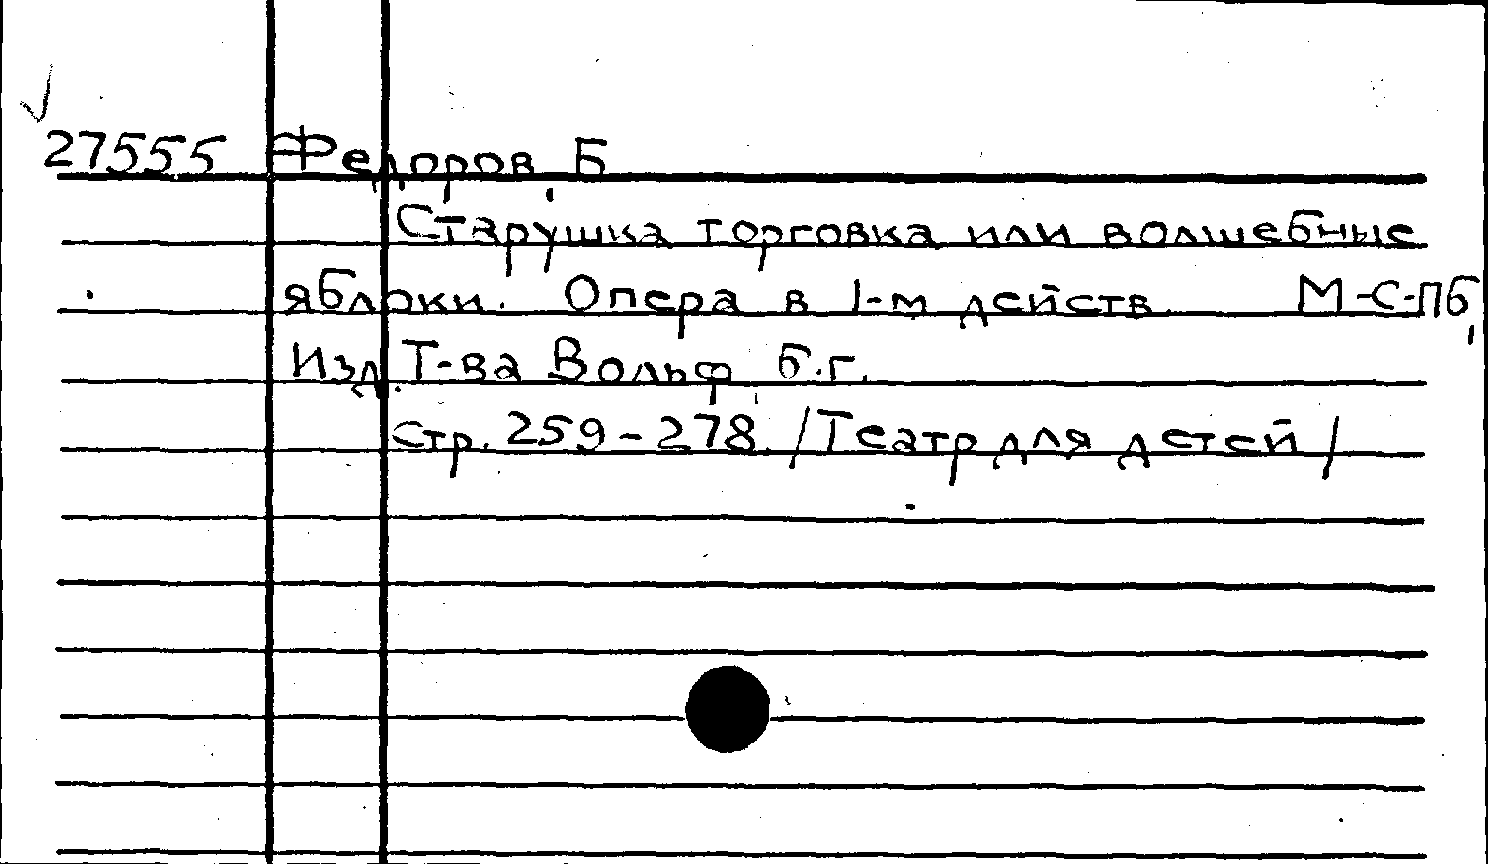 27555 Федоров, Б
Старушка торговка или волшебные
яблоки. Опера в 1-м действ. М-С-Пб,
Изд. Т-ва Вольф б.г.
Стр. 259-278. /Театр для детей/